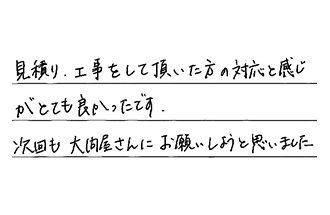 見積り、工事をして頂いた方の対応と感じ
がとても良かったです.
次回も大肉屋さんにお願いしようと思いました